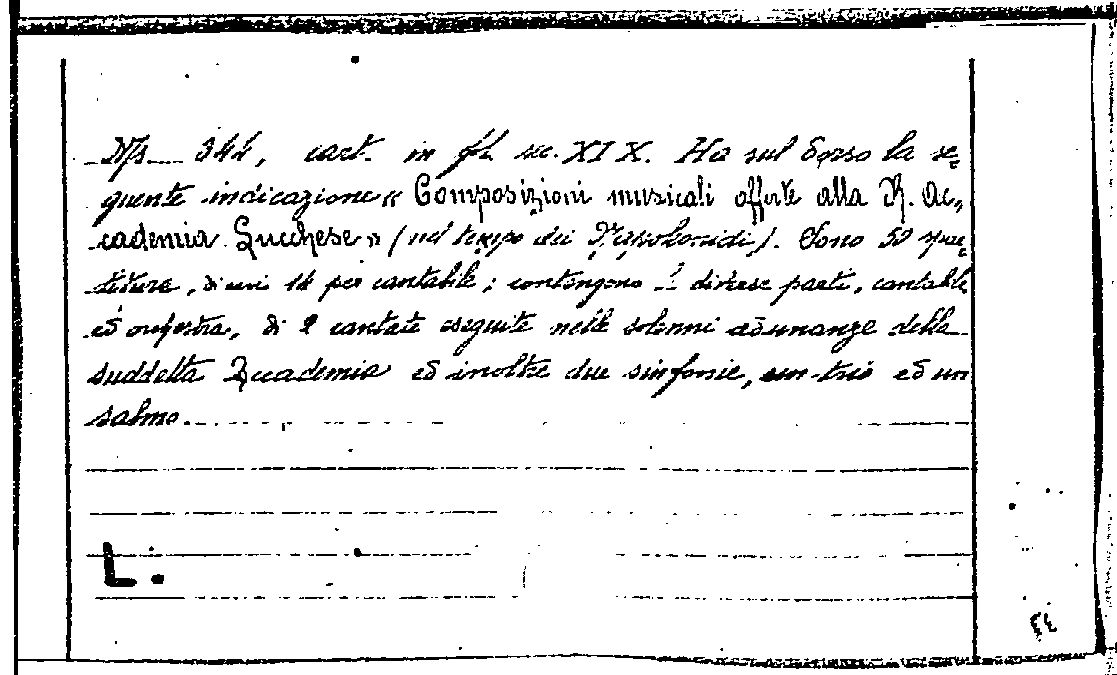 Ms. 344, cart. in fl. sec. XIX. Ha sul dorso la se-
guente indicazione « Composizioni musicali offerte alla R. Ac-
cademia Lucchese » (nel tempo dei Napoleonidi). Sono 59 par-
titure, di cui 14 per cantabile; contengono le diverse parti, cantabile
ed orchestra, di 2 cantate eseguite nelle solenni adunanze della
suddetta Accademia ed inoltre due sinfonie, un trio ed un
salmo.
L.